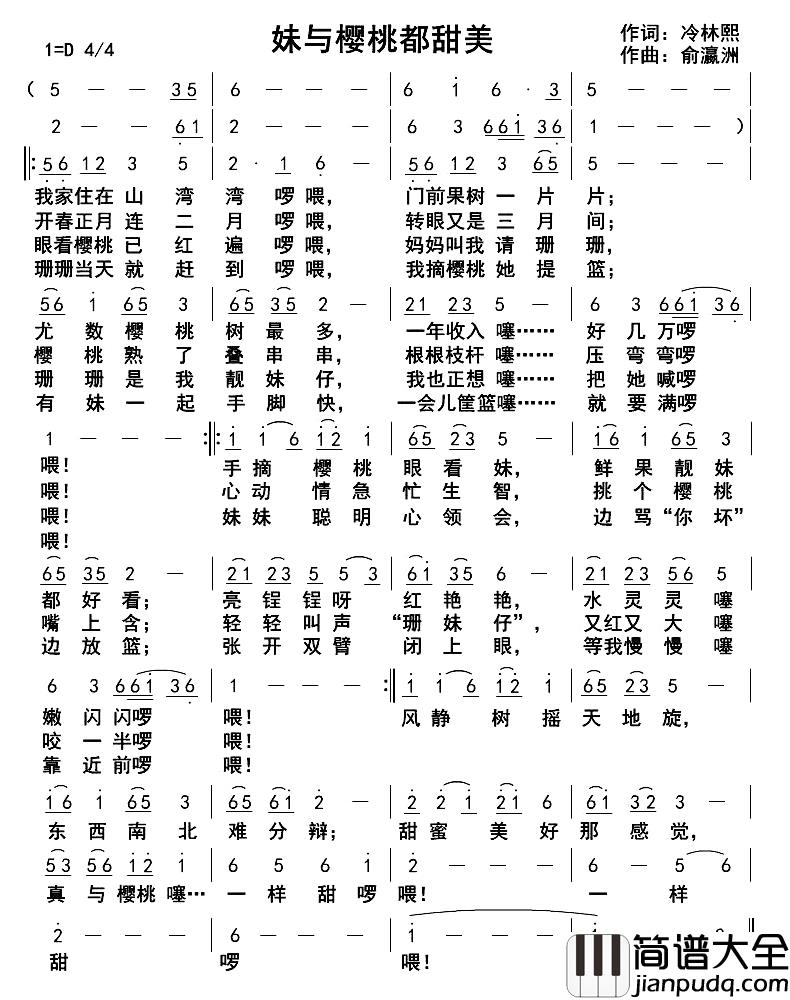 妹与樱桃都甜美
1=D 4/4
作词：冷林熙
作曲：俞瀛洲
( 5 — — 35 | 6 — — — | 6 1 6 · 3 | 5 — — — |
2 — — 61 | 2 — — — | 6 3 661 36 | 1 — — — )
‖: 56 12 3 5 | 2 · 1 6 — | 56 12 3 65 | 5 — — — |
我家住在 山 湾 湾 啰 喂， 门前果树 一 片 片；
开春正月 连 二 月 啰 喂， 转眼又是 三 月 间；
眼看樱桃 已 红 遍 啰 喂， 妈妈叫我 请 珊 珊，
珊珊当天 就 赶 到 啰 喂， 我摘樱桃 她 提 篮；
56 1 65 3 | 65 35 2 — | 21 23 5 — | 6 3 661 36 |
尤 数 樱 桃 树 最 多， 一年收入 噻…… 好 几 万啰
樱 桃 熟 了 叠 串 串， 根根枝杆 噻…… 压 弯 弯啰
珊 珊 是 我 靓 妹 仔， 我也正想 噻…… 把 她 喊啰
有 妹 一 起 手 脚 快， 一会儿筐篮噻…… 就 要 满啰
1 — — — :‖: 1 1 6 12 1 | 65 23 5 — | 16 1 65 3 |
喂！ 手 摘 樱 桃 眼 看 妹， 鲜 果 靓 妹
喂！ 心 动 情 急 忙 生 智， 挑 个 樱 桃
喂！ 妹 妹 聪 明 心 领 会， 边 骂“你 坏”
喂！
65 35 2 — | 21 23 5 5 3 | 61 35 6 — | 21 23 56 5 |
都 好 看； 亮 锃 锃 呀 红 艳 艳， 水 灵 灵 噻
嘴 上 含； 轻 轻 叫 声 “珊 妹 仔”， 又 红 又 大 噻
边 放 篮； 张 开 双 臂 闭 上 眼， 等 我 慢 慢 噻
6 3 661 36 | 1 — — — :‖ 1 1 6 12 1 | 65 23 5 — |
嫩 闪 闪啰 喂！ 风 静 树 摇 天 地 旋，
咬 一 半啰 喂！
靠 近 前啰 喂！
16 1 65 3 | 65 61 2 — | 2 2 1 21 6 | 61 32 3 — |
东 西 南 北 难 分 辩； 甜 蜜 美 好 那 感 觉，
53 56 12 1 | 6 5 6 1 | 2 — — — | 6 — 5 6 |
真 与 樱桃 噻… 一 样 甜 啰 喂！ 一 样
2 — — — | 6 — — — | 1 — — — | 1 — 0
甜 啰 喂！
简谱大全
jianpudq.com